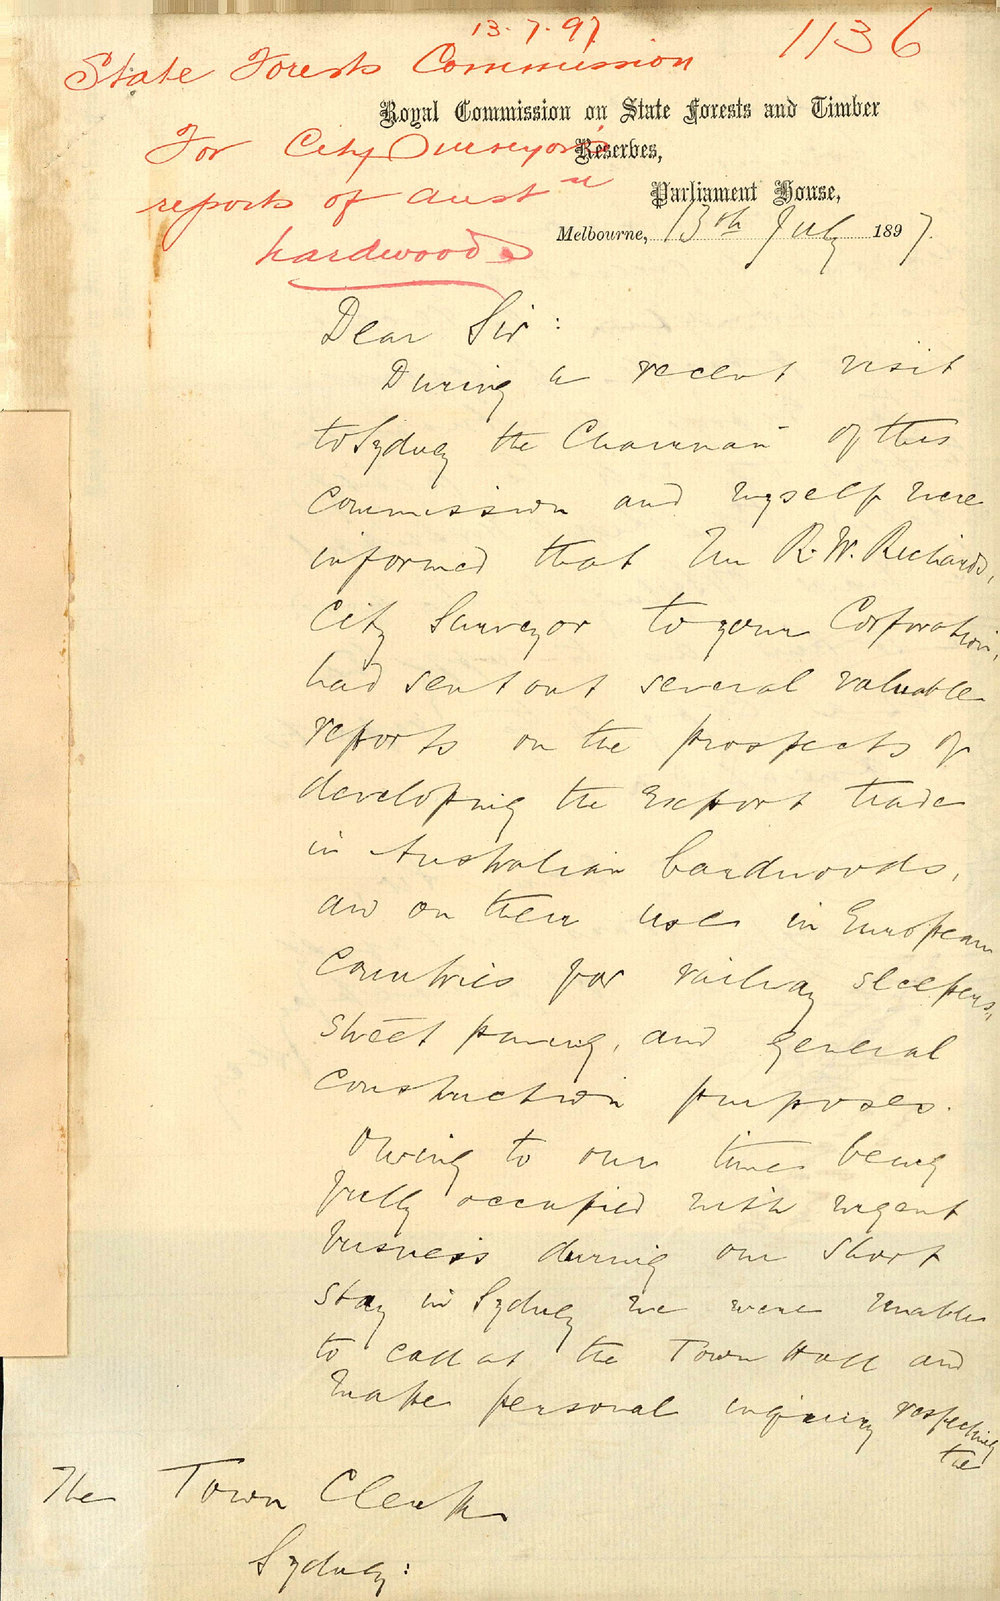 13.7.97
1136
State Forests Commission
Royal Commission on State Forests and Timber
For City Surveyor's
Reserves,
reports of Aust n
Parliament House,
hardwoods
Melbourne, 13th July 1897.
Dear Sir:
During a recent visit
to Sydney the Chairman of this
Commission and myself were
informed that Mr R. W. Richards,
City Surveyor to your Corporation,
had sent out several valuable
reports on the prospects of
developing the export trade
in Australian hardwoods,
and on their uses in European
Countries for railway sleepers,
street paving, and general
construction purposes.
Owing to our time being
fully occupied with urgent
business during our short
stay in Sydney we were unable
to call at the Town Hall and
make personal inquiry respecting
the
The Town Clerk
Sydney: